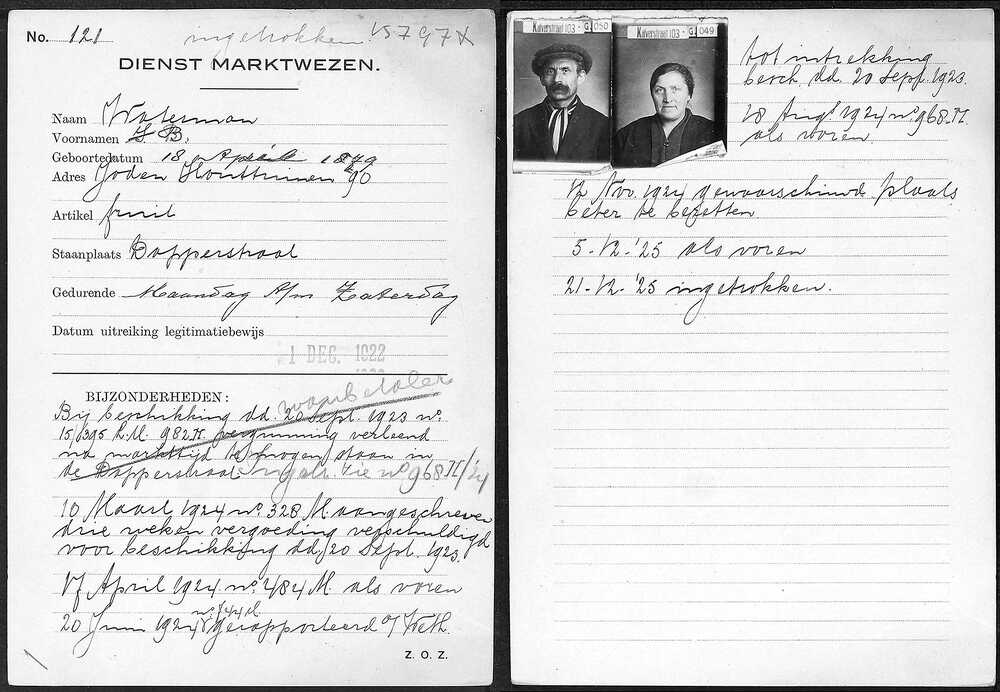 No. 121 ingetrokken. 15797x
DIENST MARKTWEZEN.
Naam Waterman
Voornamen I. B.
Geboortedatum 18 April 1879
Adres Joden Houttuinen 90
Artikel fruit
Staanplaats Dapperstraat
Gedurende Maandag t/m Zaterdag
Datum uitreiking legitimatiebewijs
1 DEC. 1922
BIJZONDERHEDEN: wanbetaler
Bij beschikking dd. 20 Sept. 1923 no.
15/395 L.M. 982 H. vergunning verleend
na markttijd te mogen staan in
de Dapperstraat. Zie no. 968 H/24
10 Maart 1924 no. 328 M. aangeschreven
drie weken vergoeding verschuldigd
voor beschikking dd. 20 Sept. 1923.
17 April 1924 no. 484 M. als voren
20 Juni 1924 no. 744 gerapporteerd a/ Weth.
Z. O. Z.
Kalverstraat 103 - G. 050
Kalverstraat 103 - G. 049
tot intrekking
besch. dd. 20 Sept. 1923.
28 Aug. 1924 no. 968 H.
als voren.
12 Nov. 1924 gewaarschuwd plaats
beter te bezetten.
5-12-'25 als voren
21-12-'25 ingetrokken.